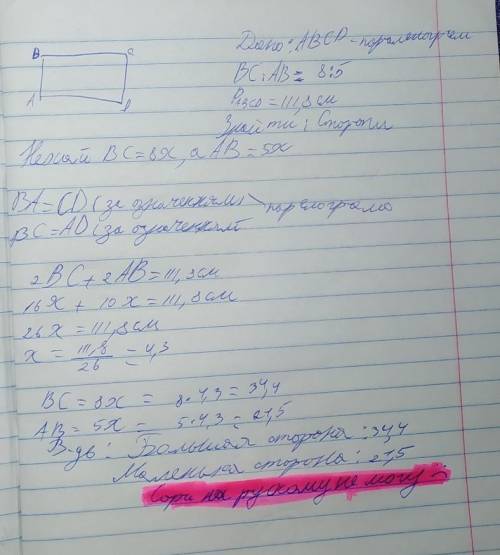 B C
A D
Дано: ABCD - паралелограм
BC:AB = 8:5
P ABCD = 111,8 см
Знайти: Сторони
Нехай BC=8x, а AB=5x
BA=CD (за означенням) паралелограма
BC=AD (за означенням
2BC+2AB=111,8см
16x + 10x = 111,8см
26x = 111,8см
x = 111,8/26 = 4,3
BC = 8x = 8·4,3 = 34,4
AB = 5x = 5·4,3 = 21,5
В-дь: Большая сторона: 34,4
Маленькая сторона: 21,5
Сори на рускому не могу